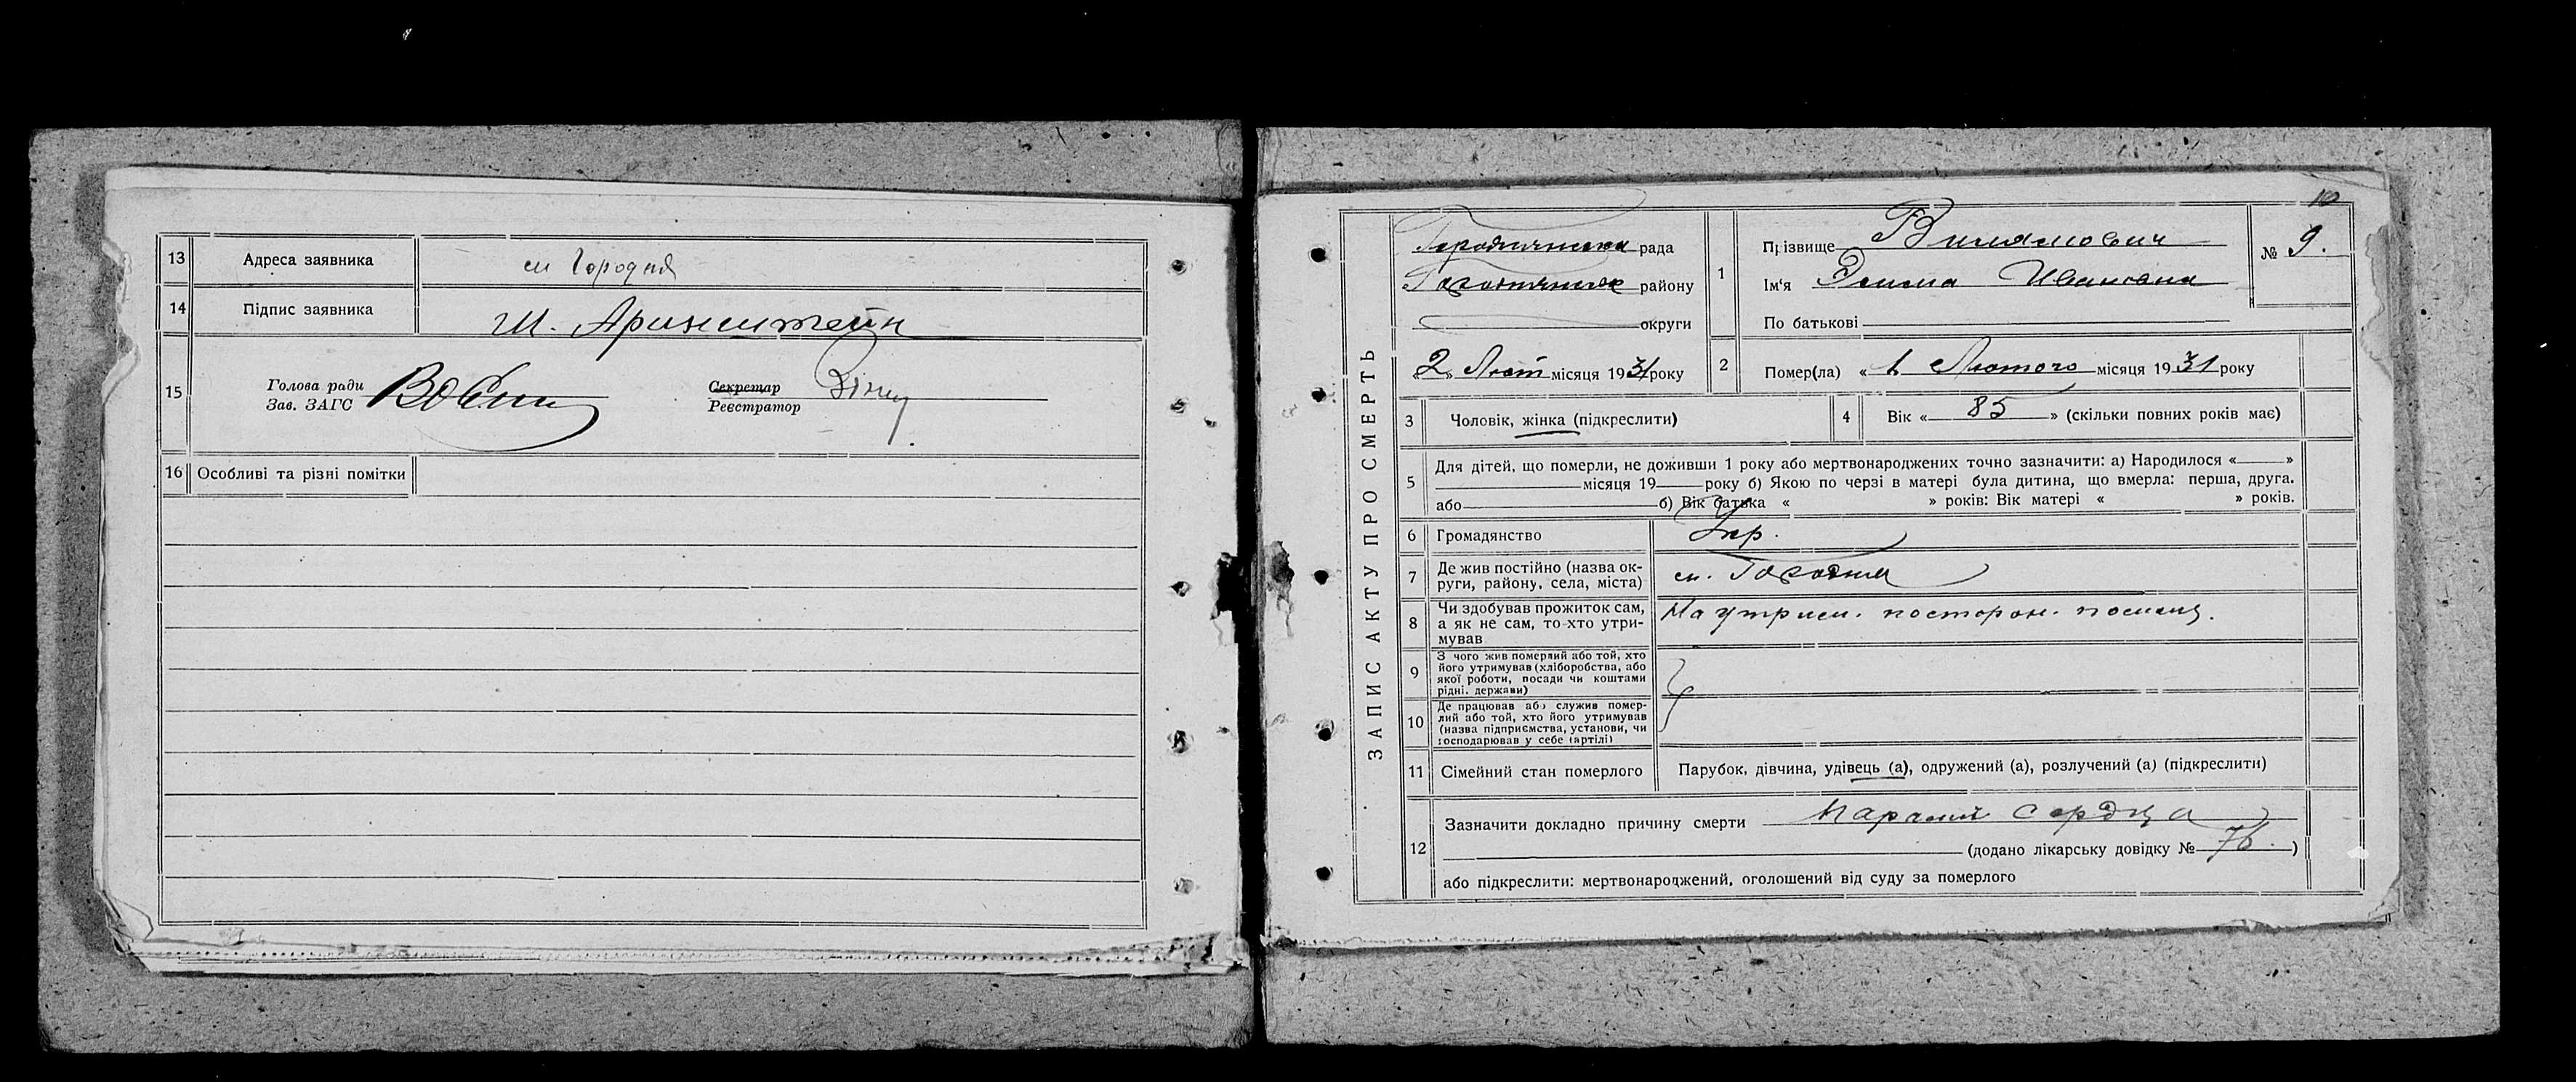 13 Адреса заявника см Городня
14 Підпис заявника Ш. Аринштейн
15 Голова ради
Зав. ЗАГС
Секретар
Реєстратор
16 Особливі та різні помітки
10
ЗАПИС АКТУ ПРО СМЕРТЬ
рада
району
округи
«2» Лют місяця 1931 року
1 Прізвище
Ім'я Эмма Ивановна
По батькові
№ 9.
2 Помер(ла) «1 Лютого місяця 1931 року
3 Чоловік, жінка (підкреслити)
4 Вік «85» (скільки повних років має)
5 Для дітей, що померли, не доживши 1 року або мертвонароджених точно зазначити: а) Народилося « »
місяця 19 року б) Якою по черзі в матері була дитина, що вмерла: перша, друга.
або б) Вік батька « » років: Вік матері « » років.
6 Громадянство Укр.
7 Де жив постійно (назва округи, району, села, міста) см. Городня
8 Чи здобував прожиток сам,
а як не сам, то-хто утри-
мував На утрим. посторон.
9 З чого жив померлий або той, хто
його утримував (хліборобства, або
якої роботи, посади чи коштами
рідні, держави)
10 Де працював або служив помер-
лий або той, хто його утримував
(назва підприємства, установи, чи
господарював у себе (артілі)
11 Сімейний стан померлого Парубок, дівчина, удівець (а), одружений (а), розлучений (а) (підкреслити)
12 Зазначити докладно причину смерти сердца
(додано лікарську довідку № 76.)
або підкреслити: мертвонароджений, оголошений від суду за померлого